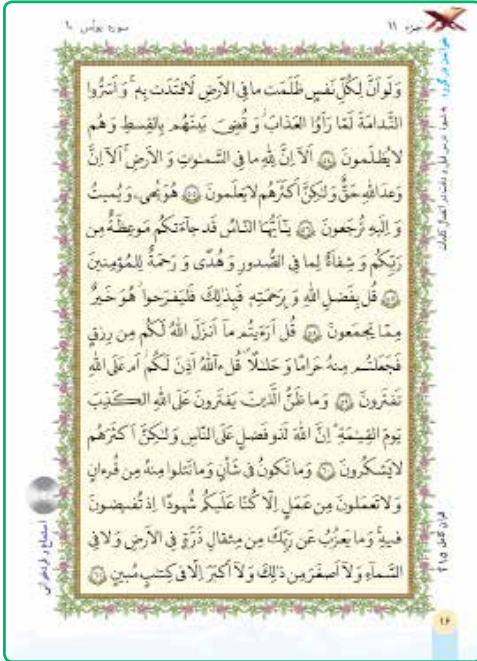 جزء ۱۱
سوره یونس ۱۰
وَلَوأَنَّ لِكُلِّ نَفسٍ ظَلَمَت ما فِی الاَرضِ لَافتَدَت بِه وَ اَسَرُّوا
النَّدامَةَ لَمّا رَاَوُا العَذابَ وَ قُضِیَ بَینَهُم بِالقِسطِ وَ هُم
لا یُظلَمونَ ۵۴ اَلآ اِنَّ لِلّٰهِ ما فِی السَّمٰوٰتِ وَ الاَرضِ اَلآ اِنَّ
وَعدَ اللهِ حَقٌّ وَ لٰکِنَّ اَکثَرَهُم لا یَعلَمونَ ۵۵ هُوَ یُحیی وَ یُمیتُ
وَ اِلَیهِ تُرجَعونَ ۵۶ یٰٓاَیُّهَا النّاسُ قَد جآءَتکُم مَوعِظَةٌ مِن
رَبِّکُم وَ شِفآءٌ لِما فِی الصُّدورِ وَ هُدًی وَ رَحمَةٌ لِلمُؤمِنینَ
۵۷ قُل بِفَضلِ اللهِ وَ بِرَحمَتِه فَبِذٰلِکَ فَلیَفرَحوا هُوَ خَیرٌ
مِمّا یَجمَعونَ ۵۸ قُل اَرَءَیتُم مآ اَنزَلَ اللهُ لَکُم مِن رِزقٍ
فَجَعَلتُم مِنهُ حَرامًا وَ حَلٰلًا قُل ءآللهُ اَذِنَ لَکُم اَم عَلَی اللهِ
تَفتَرونَ ۵۹ وَ ما ظَنُّ الَّذینَ یَفتَرونَ عَلَی اللهِ الکَذِبَ
یَومَ القِیٰمَةِ اِنَّ اللهَ لَذو فَضلٍ عَلَی النّاسِ وَ لٰکِنَّ اَکثَرَهُم
لا یَشکُرونَ ۶۰ وَ ما تَکونُ فی شَأنٍ وَ ما تَتلوا مِنهُ مِن قُرءانٍ
وَ لا تَعمَلونَ مِن عَمَلٍ اِلّا کُنّا عَلَیکُم شُهودًا اِذ تُفیضونَ
فیهِ وَ ما یَعزُبُ عَن رَبِّکَ مِن مِثقالِ ذَرَّةٍ فِی الاَرضِ وَ لا فِی
السَّمآءِ وَ لآ اَصغَرَ مِن ذٰلِکَ وَ لآ اَکبَرَ اِلّا فی کِتٰبٍ مُبینٍ ۶۱
قرآن کامل ۲۱۵
استماع و
۱۶